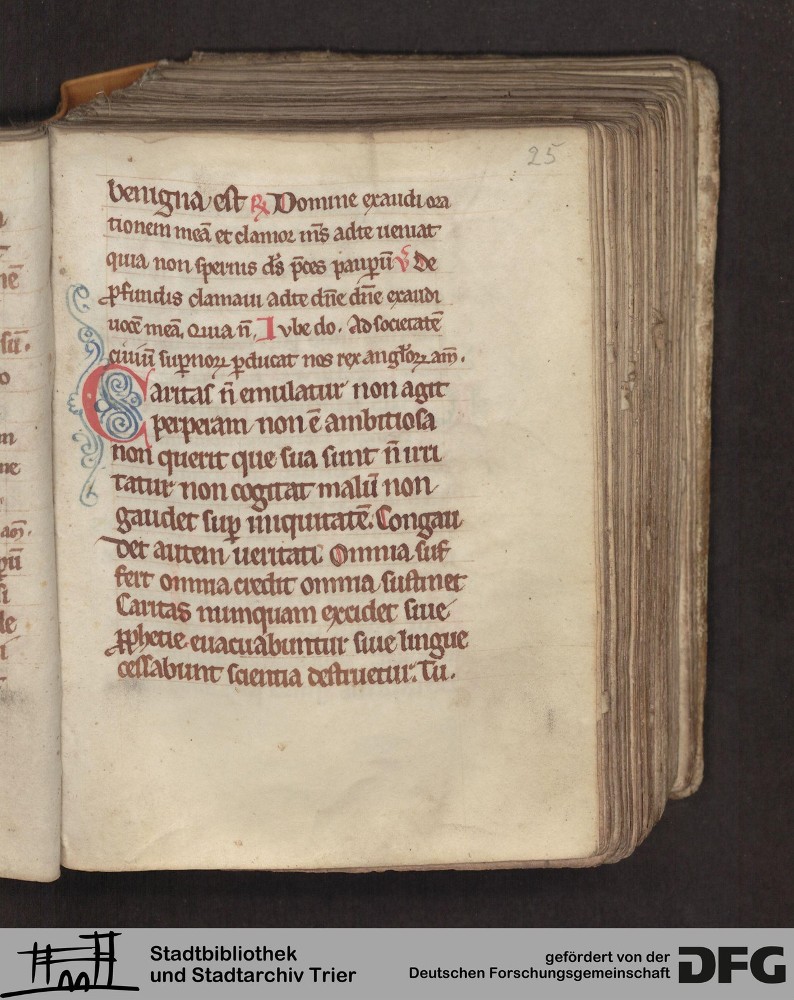 25
benigna est ℟ Domine exaudi ora
tionem meā et clamor m̄s ad te ueniat
quia non spernis d̄s p̄ces paupū ℣ De
ꝓfundis clamaui ad te dn̄e dn̄e exaudi
uocē meā. Quia n̄. Iube do. Ad societatē
ciuiū supnoꝝ ꝑducat nos rex anglōꝝ am̄.
Caritas n̄ emulatur non agit
perperam non ē ambitiosa
non querit que sua sunt n̄ irri
tatur non cogitat malū non
gaudet sup̄ iniquitatē. Congau
det autem ueritati. Omnia suf
fert omnia credit omnia sustinet
Caritas numquam excidet siue
ꝓphetie euacuabuntur siue lingue
cessabunt scientia destruetur. Tu.
Stadtbibliothek
und Stadtarchiv Trier
gefördert von der
Deutschen Forschungsgemeinschaft
DFG